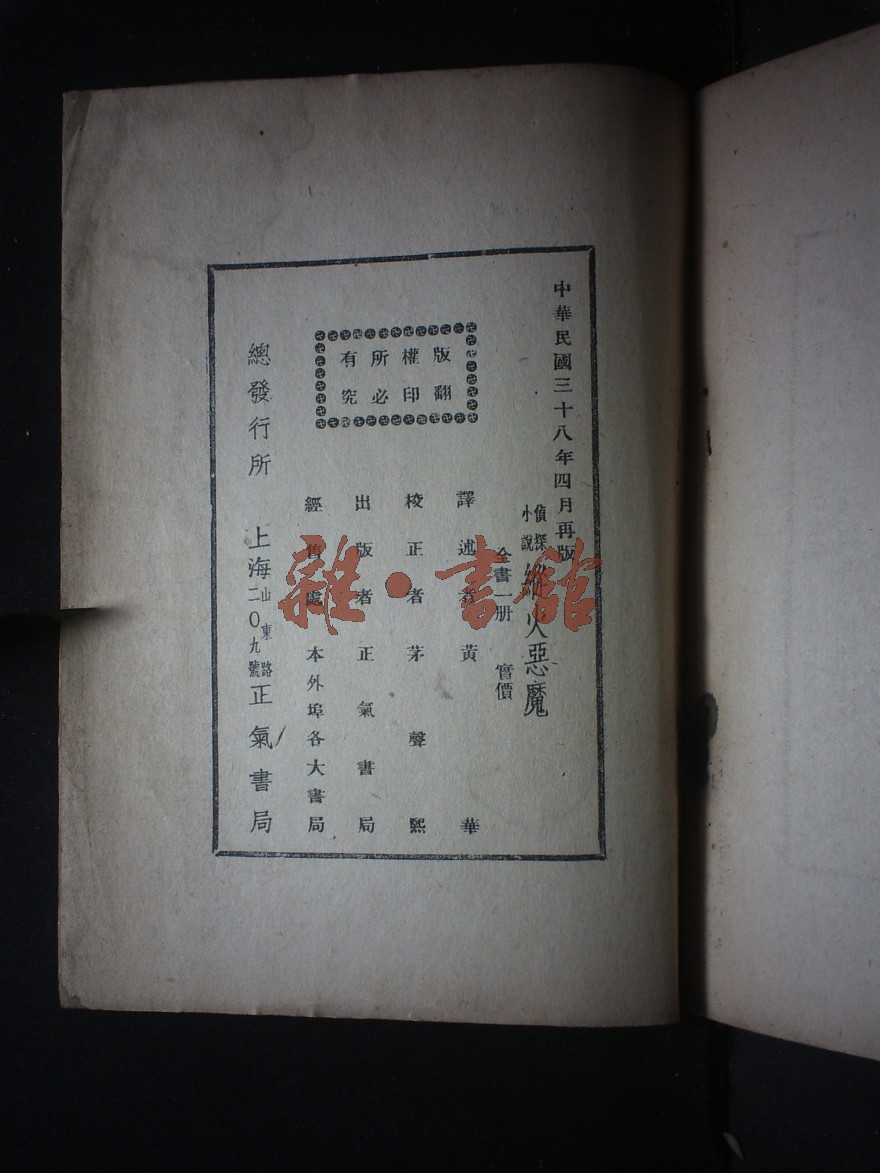 中華民國三十八年四月再版
偵探
小說
縱火惡魔
全書一册 實價
譯述者黃華
校正者茅聲熙
出版者正氣書局
經售處本外埠各大書局
版權所有
翻印必究
總發行所 上海山東路二〇九號正氣書局
雜·書館